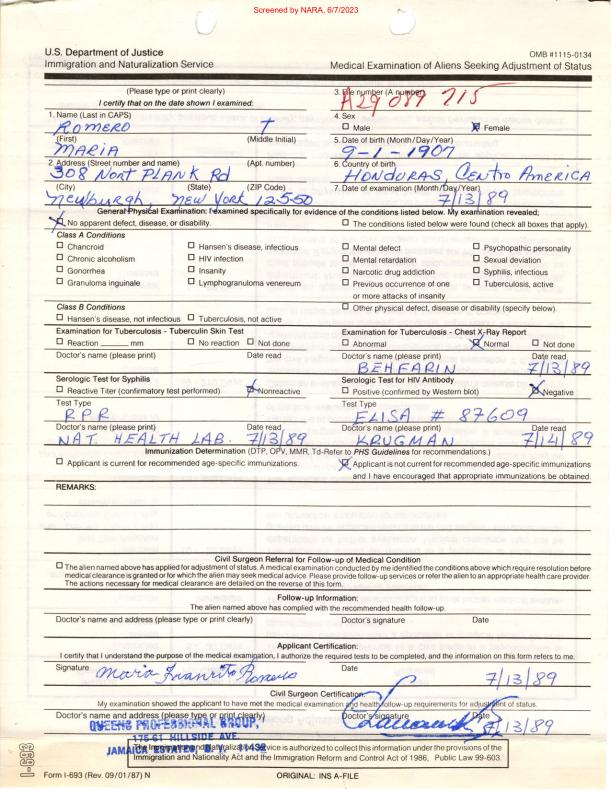 Screened by NARA, 6/7/2023
U.S. Department of Justice
Immigration and Naturalization Service
OMB #1115-0134
Medical Examination of Aliens Seeking Adjustment of Status
(Please type or print clearly)
I certify that on the date shown I examined:
3. File number (A number)
A29 089 715
1. Name (Last in CAPS)
ROMERO
4. Sex
Male Female
(First) (Middle Initial)
MARIA
5. Date of birth (Month/Day/Year)
9-1-1907
2. Address (Street number and name) (Apt. number)
308 Nort PLANK Rd
6. Country of birth
HONDURAS, Centro America
(City) (State) (ZIP Code)
Newburgh, New York 12550
7. Date of examination (Month/Day/Year)
7/13/89
General Physical Examination: I examined specifically for evidence of the conditions listed below. My examination revealed;
No apparent defect, disease, or disability. The conditions listed below were found (check all boxes that apply).
Class A Conditions
Chancroid Hansen's disease, infectious Mental defect Psychopathic personality
Chronic alcoholism HIV infection Mental retardation Sexual deviation
Gonorrhea Insanity Narcotic drug addiction Syphilis, infectious
Granuloma inguinale Lymphogranuloma venereum Previous occurrence of one Tuberculosis, active
or more attacks of insanity
Class B Conditions
Other physical defect, disease or disability (specify below).
Hansen's disease, not infectious Tuberculosis, not active
Examination for Tuberculosis - Tuberculin Skin Test
Reaction ______ mm No reaction Not done
Doctor's name (please print) Date read
Examination for Tuberculosis - Chest X-Ray Report
Abnormal Normal Not done
Doctor's name (please print) Date read
BEHFARIN 7/13/89
Serologic Test for Syphilis
Reactive Titer (confirmatory test performed) Nonreactive
Test Type
RPR
Doctor's name (please print) Date read
NAT. HEALTH LAB. 7/13/89
Serologic Test for HIV Antibody
Positive (confirmed by Western blot) Negative
Test Type
ELISA # 87609
Doctor's name (please print) Date read
KRUGMAN 7/14/89
Immunization Determination (DTP, OPV, MMR, Td-Refer to PHS Guidelines for recommendations.)
Applicant is current for recommended age-specific immunizations. Applicant is not current for recommended age-specific immunizations
and I have encouraged that appropriate immunizations be obtained.
REMARKS:
Civil Surgeon Referral for Follow-up of Medical Condition
The alien named above has applied for adjustment of status. A medical examination conducted by me identified the conditions above which require resolution before
medical clearance is granted or for which the alien may seek medical advice. Please provide follow-up services or refer the alien to an appropriate health care provider.
The actions necessary for medical clearance are detailed on the reverse of this form.
Follow-up Information:
The alien named above has complied with the recommended health follow-up.
Doctor's name and address (please type or print clearly) Doctor's signature Date
Applicant Certification:
I certify that I understand the purpose of the medical examination, I authorize the required tests to be completed, and the information on this form refers to me.
Signature Date
Maria Romero 7/13/89
Civil Surgeon Certification:
My examination showed the applicant to have met the medical examination and health follow-up requirements for adjustment of status.
Doctor's name and address (please type or print clearly) Doctor's signature Date
QUEENS PROFESSIONAL GROUP, 7/13/89
175-61 HILLSIDE AVE.
JAMAICA ESTATES, N.Y. 11432
The Immigration and Naturalization Service is authorized to collect this information under the provisions of the
Immigration and Nationality Act and the Immigration Reform and Control Act of 1986, Public Law 99-603.
I-693
Form I-693 (Rev. 09/01/87) N
ORIGINAL: INS A-FILE